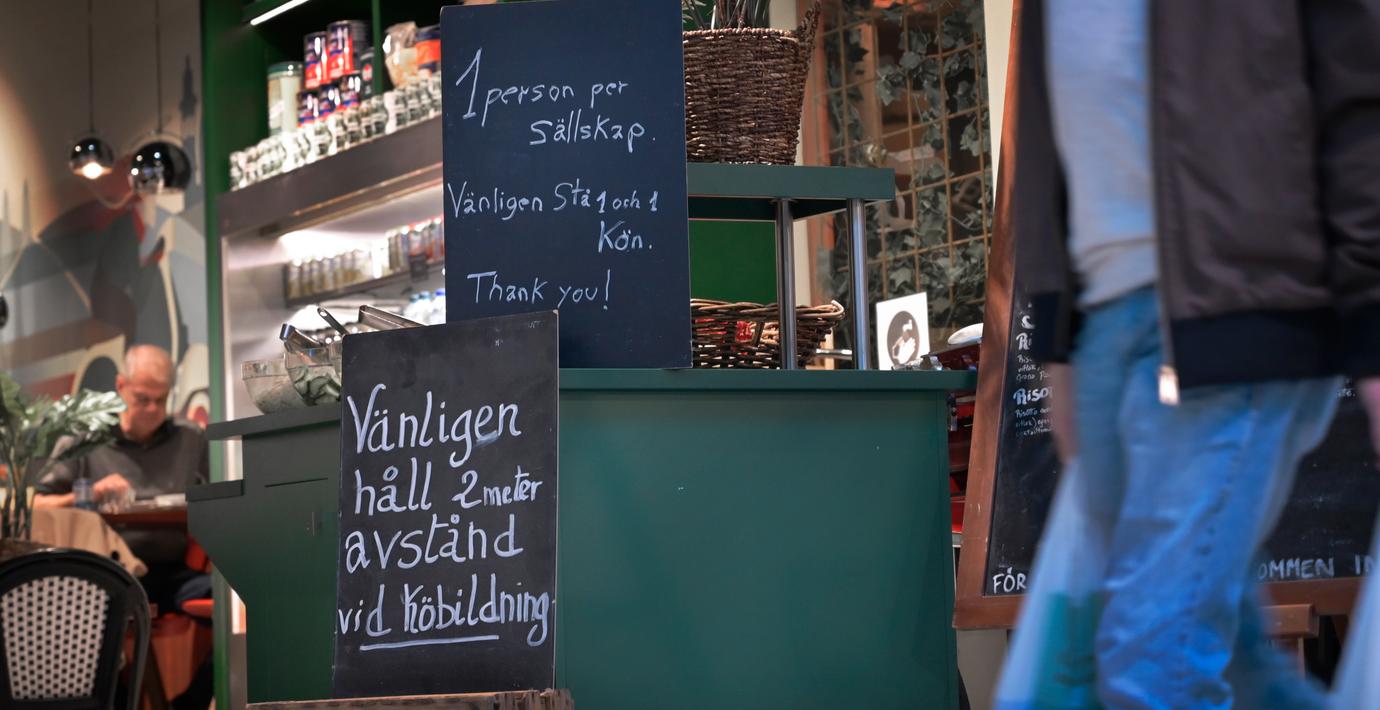 1 person per
Sällskap.
Vänligen Stå 1 och 1
Kön.
Thank you!
Vänligen
håll 2 meter
avstånd
vid Köbildning
FÖR
OMMEN IN